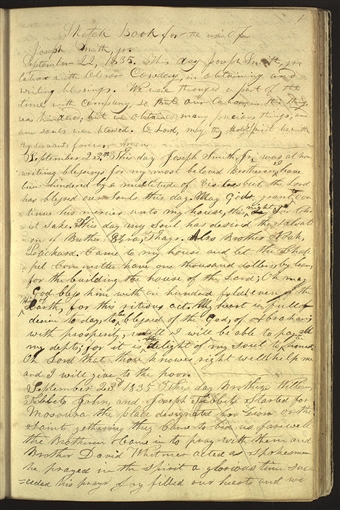 1
Sketch book for the use of
Joseph Smith, jr
September 22, 1835. This day Joseph Smith, jr
labored with Oliver Cowdery, in obtaining and
writing blessings. We were thronged a part of the
time with company, so that our labor, in this thing,
was hindered; but we obtained many precious things, and
our souls were blessed. O Lord, may thy Holy Spirit be with
thy servants forever. Amen.
September 23rd This day Joseph Smith, Jr. was at home
writing blessings for my most beloved Brotheren, have
been hindered by a multitude of visitors but the Lord
has blessed our Souls this day. May God grant
to continue his mercies unto my house, this night, For
Christ sake. This day my Soul has desired the salvation
of Brother Ezra, Thayr. Also Brother Noah,
Packard. Came to my house and let the Chap-
pel Committee have one thousand dollers, by loan,
for the building the house of the Lord; Oh may
God bless him with an hundred fold! even of the
Earth, for this righteous act. My heart is full of
desire to day, to be blessed of the God, of Abraham;
with prosperity, untill I will be able to pay all
my depts; for it is the delight of my soul to honest.
Oh Lord that thou knowes right well! help me
and I will give to the poor.
September 23d 1835 This day Brothers William
Tibbets John, and Joseph Tibbets Started for
Missouri the place designated for Zion or the
Saints gathering they Came to bid us farewell
the Brotheren Came in to pray with them and
Brother David Whitmer acted as spokesman
he prayed in the spirit a glorious time suc-
ceeded his prayr Joy filled our hearts and we